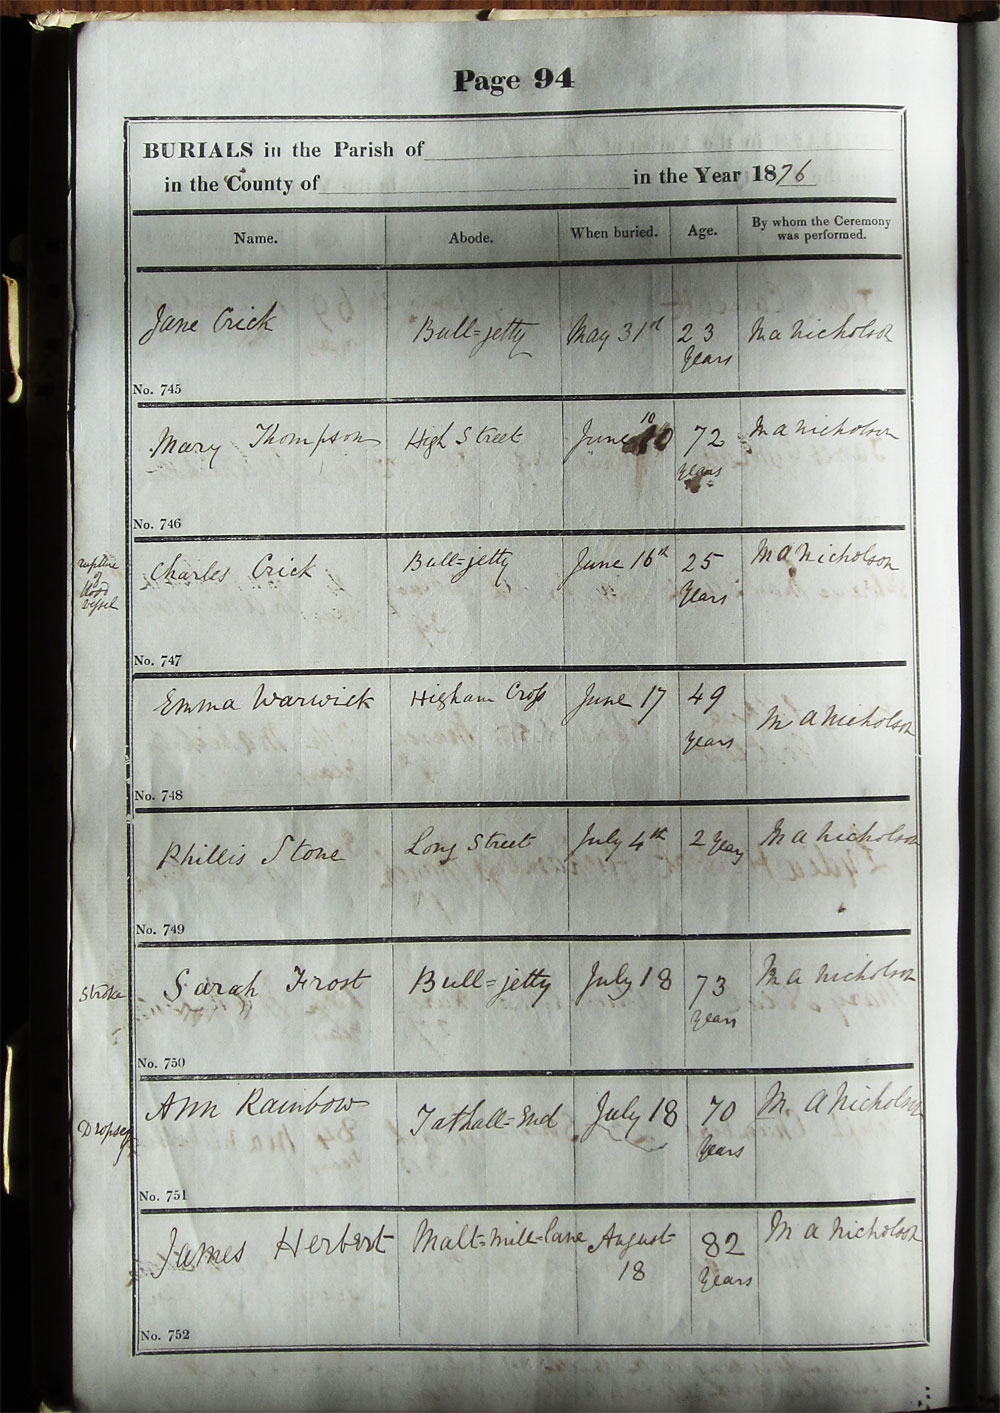 Page 94
BURIALS in the Parish of
in the County of in the Year 1876
Name. Abode. When buried. Age. By whom the Ceremony was performed.
Jane Crick Bull=jetty May 31st 23 Years M A Nicholson
No. 745
Mary Thompson High Street June 10 10 72 years M A Nicholson
No. 746
rupture of blood vessel
Charles Crick Bull=jetty June 16th 25 Years M A Nicholson
No. 747
Emma Warwick Higham Cross June 17 49 years M A Nicholson
No. 748
Phillis Stone Long Street July 4th 2 Years M A Nicholson
No. 749
Stroke
Sarah Frost Bull=jetty July 18 73 years M A Nicholson
No. 750
Dropsey
Ann Rainbow Tathall=End July 18 70 Years M A Nicholson
No. 751
James Herbert Malt=mill=lane August 18 82 Years M A Nicholson
No. 752